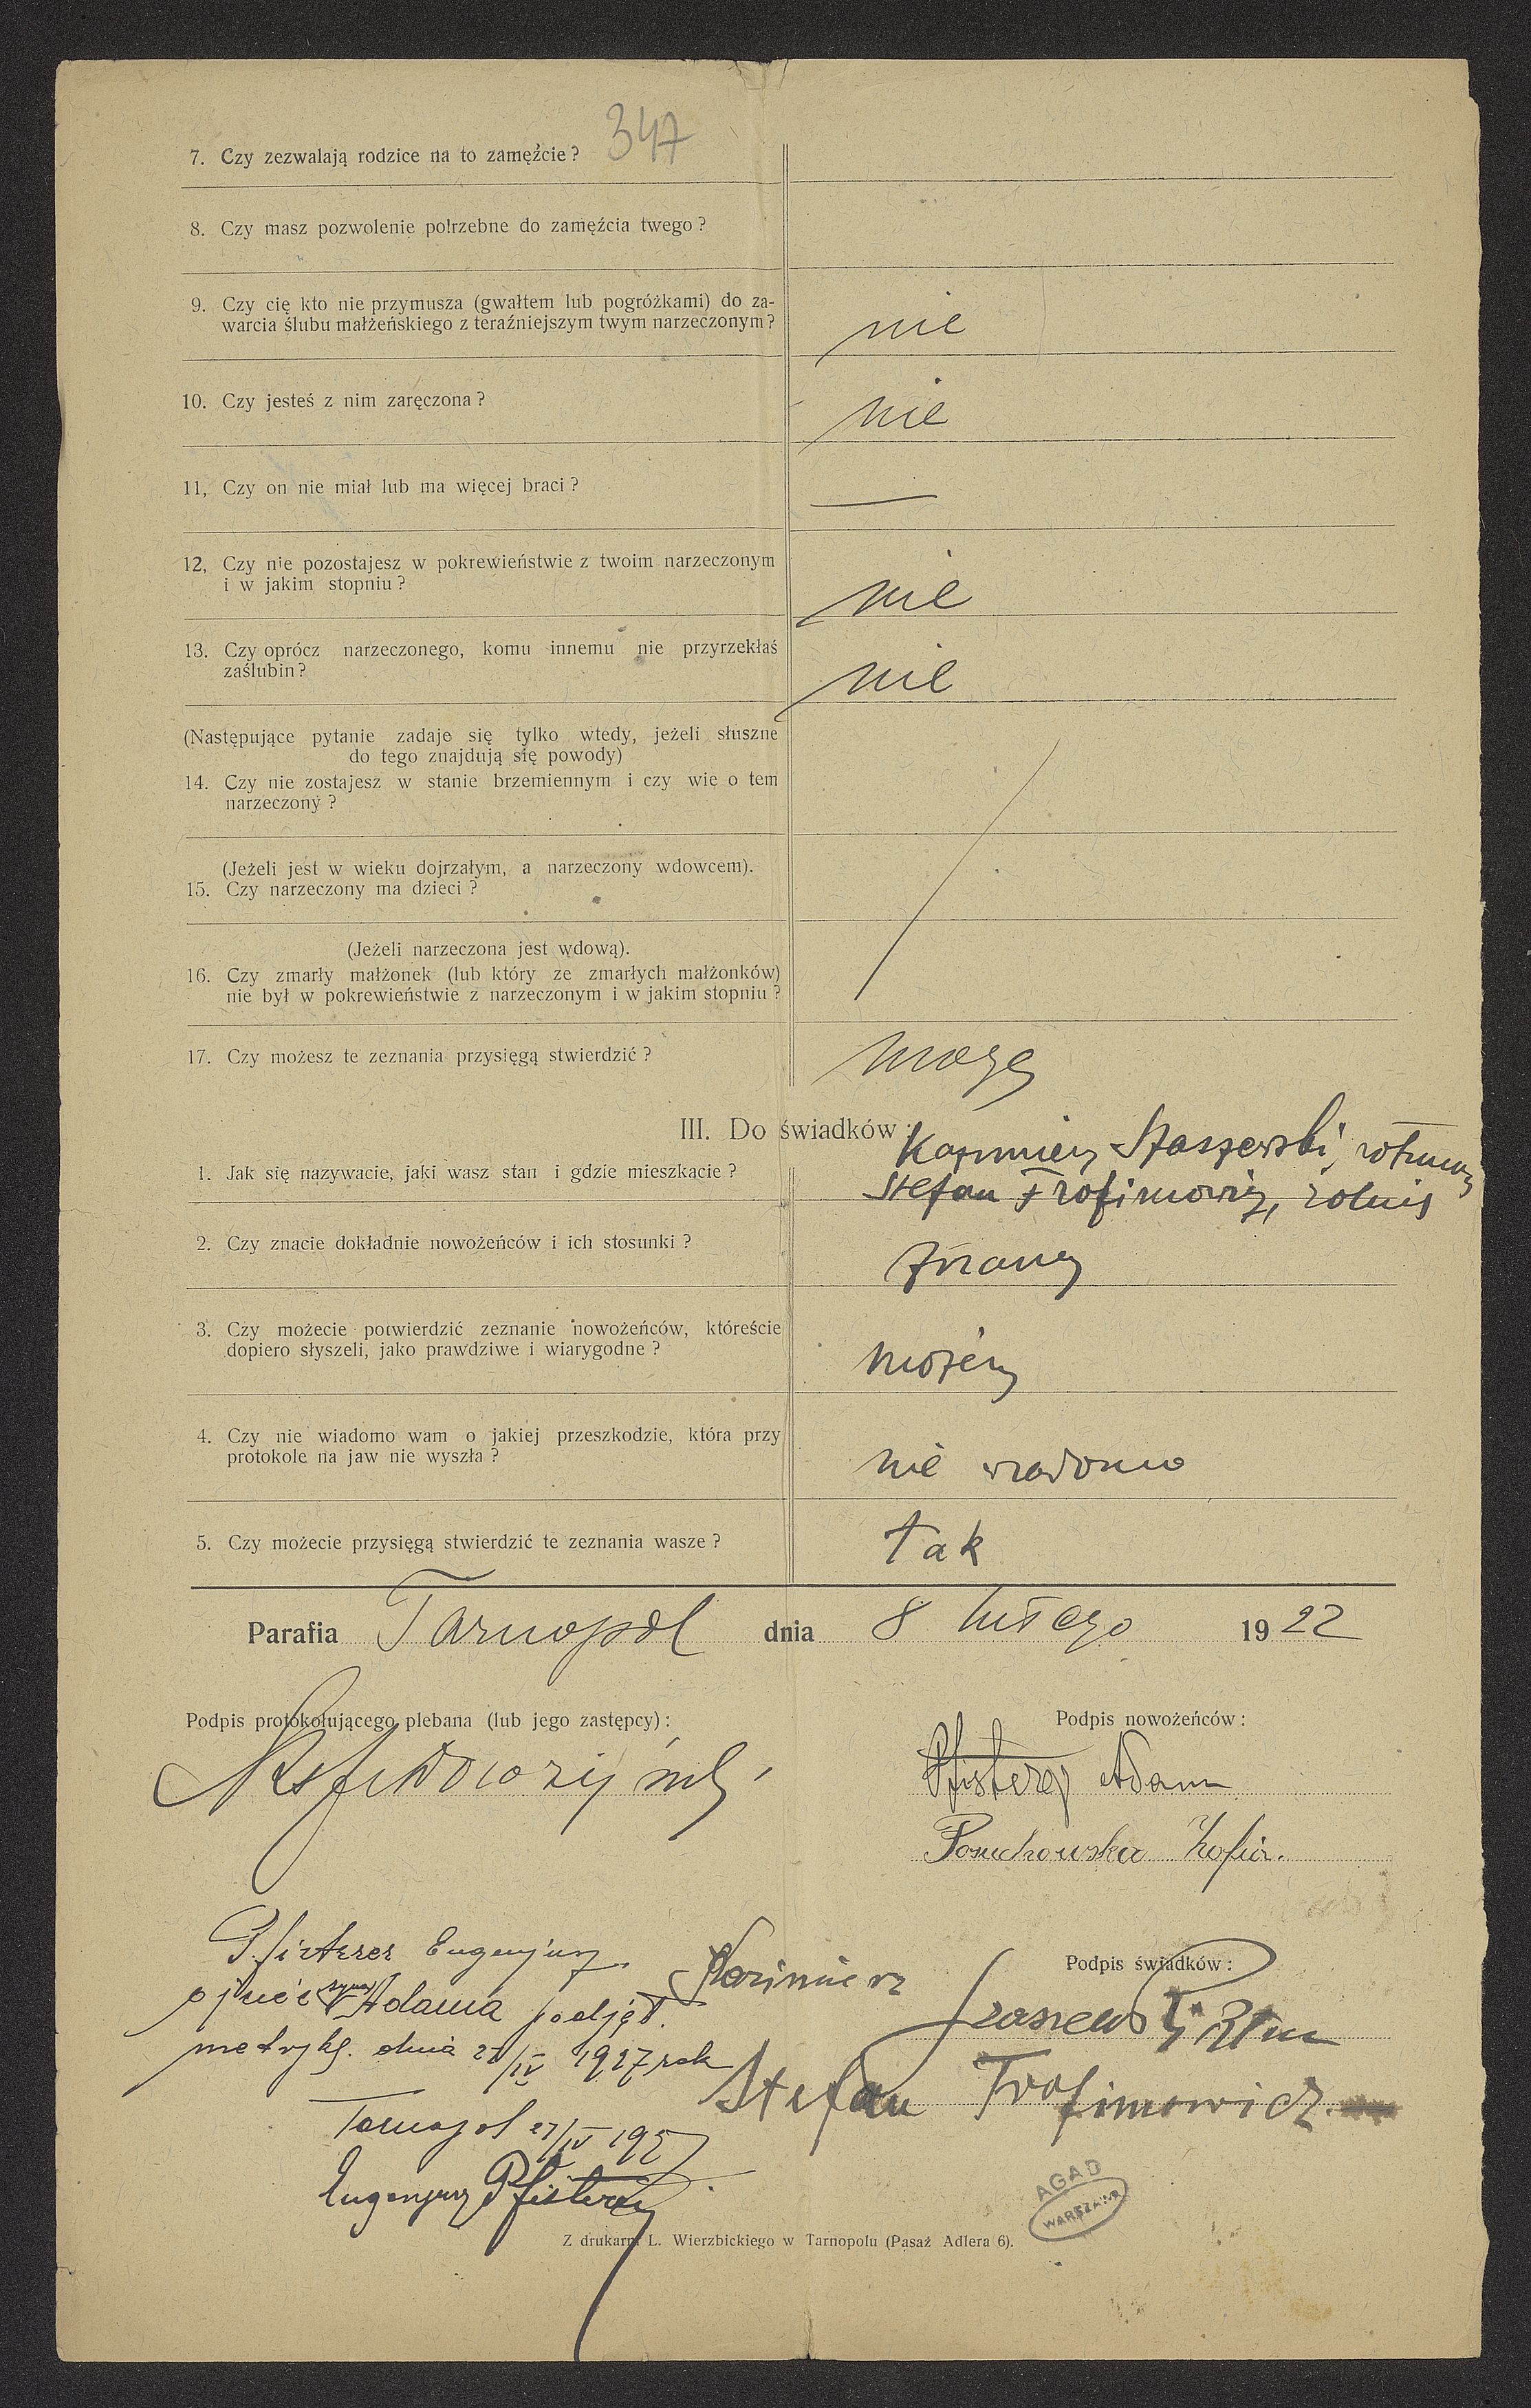 347
7. Czy zezwalają rodzice na to zamęźcie?
8. Czy masz pozwolenie potrzebne do zamęźcia twego?
9. Czy cię kto nie przymusza (gwałtem lub pogróżkami) do za-
warcia ślubu małżeńskiego z teraźniejszym twym narzeczonym?
nie
10. Czy jesteś z nim zaręczona?
nie
11, Czy on nie miał lub ma więcej braci?
—
12, Czy nie pozostajesz w pokrewieństwie z twoim narzeczonym
i w jakim stopniu?
nie
13. Czy oprócz narzeczonego, komu innemu nie przyrzekłaś
zaślubin?
nie
(Następujące pytanie zadaje się tylko wtedy, jeżeli słuszne
do tego znajdują się powody)
14. Czy nie zostajesz w stanie brzemiennym i czy wie o tem
narzeczony?
(Jeżeli jest w wieku dojrzałym, a narzeczony wdowcem).
15. Czy narzeczony ma dzieci?
(Jeżeli narzeczona jest wdową).
16. Czy zmarły małżonek (lub który ze zmarłych małżonków)
nie był w pokrewieństwie z narzeczonym i w jakim stopniu?
17. Czy możesz te zeznania przysięgą stwierdzić?
mogę
III. Do świadków:
1. Jak się nazywacie, jaki wasz stan i gdzie mieszkacie?
Kazimierz Staszewski, rotmistrz
Stefan Trofimowicz, rolnik
2. Czy znacie dokładnie nowożeńców i ich stosunki?
znamy
3. Czy możecie potwierdzić zeznanie nowożeńców, któreście
dopiero słyszeli, jako prawdziwe i wiarygodne?
możemy
4. Czy nie wiadomo wam o jakiej przeszkodzie, która przy
protokole na jaw nie wyszła?
nie wiadomo
5. Czy możecie przysięgą stwierdzić te zeznania wasze?
tak
Parafia Tarnopol dnia 8 lutego 1922
Podpis protokołującego plebana (lub jego zastępcy):
Podpis nowożeńców:
Pfisterer Adam
Posuchowska Zofia.
Pfisterer Eugenjusz
ojciec syna Adama podjął
metrykę. dnia 27/IV 1927 rok
Tarnopol 27/IV 1927
Eugenjusz Pfisterer
Podpis świadków:
Kazimierz
Staszewski Rtm
Stefan Trofimowicz
AGAD
WARSZAWA
Z drukarni L. Wierzbickiego w Tarnopolu (Pasaż Adlera 6).